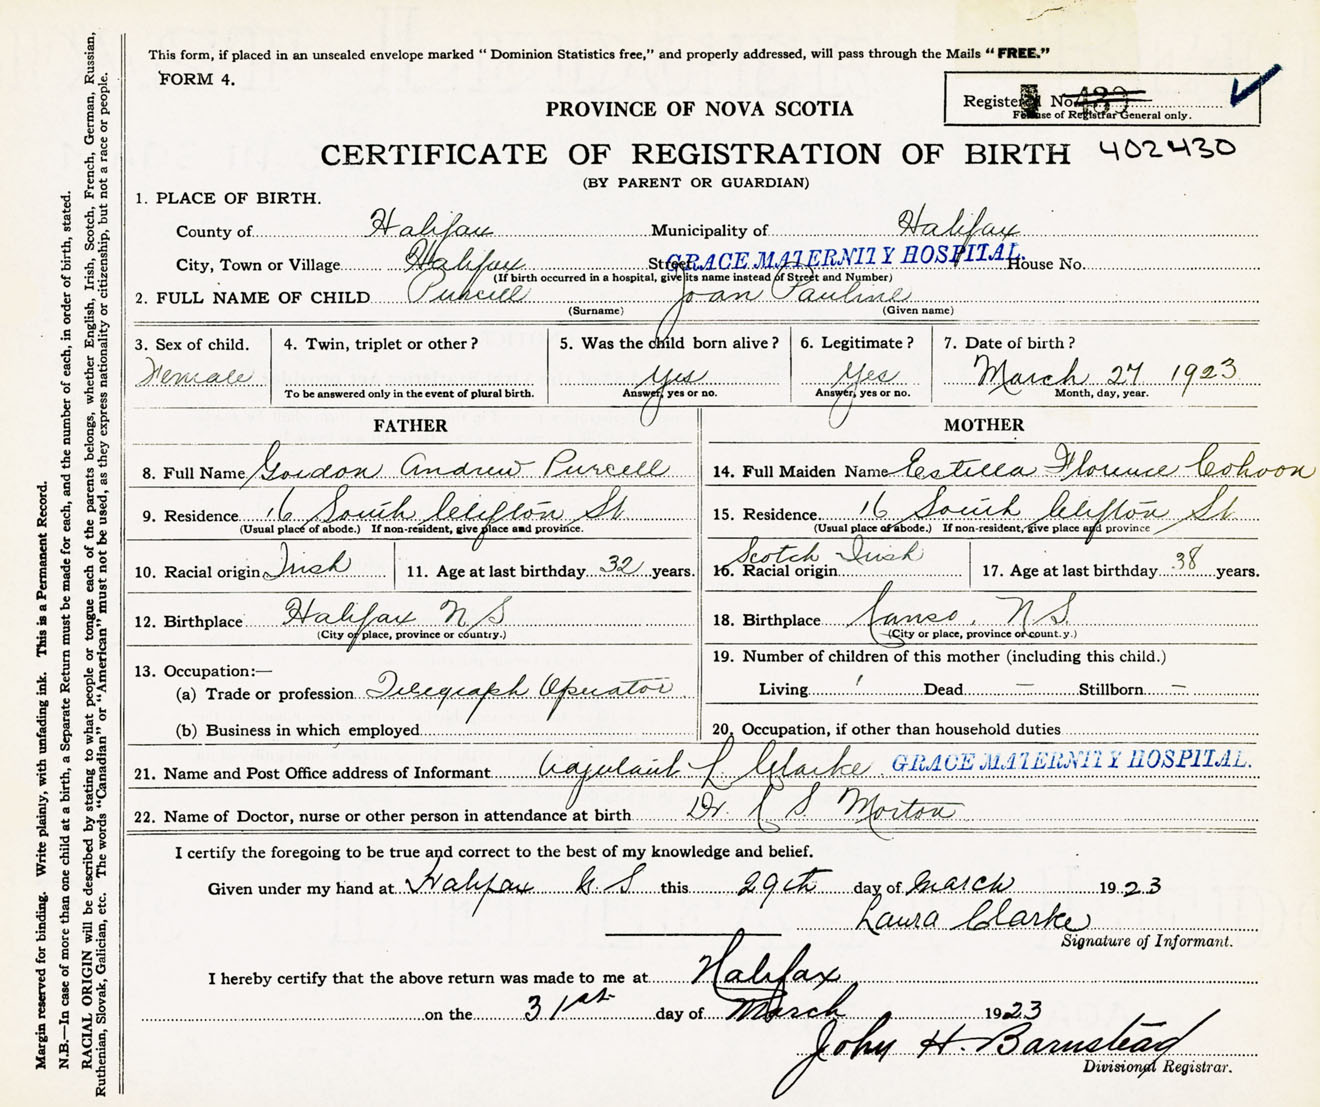 This form, if placed in an unsealed envelope marked "Dominion Statistics free," and properly addressed, will pass through the Mails "FREE."
FORM 4.
Registered No. 439
For use of Registrar General only.
PROVINCE OF NOVA SCOTIA
CERTIFICATE OF REGISTRATION OF BIRTH 402430
(BY PARENT OR GUARDIAN)
1. PLACE OF BIRTH.
County of Halifax Municipality of Halifax
City, Town or Village Halifax Street GRACE MATERNITY HOSPITAL. House No.
(If birth occurred in a hospital, give its name instead of Street and Number)
2. FULL NAME OF CHILD Purcell Joan Pauline
(Surname) (Given name)
3. Sex of child. 4. Twin, triplet or other? 5. Was the child born alive? 6. Legitimate? 7. Date of birth?
Female Yes Yes March 27 1923
To be answered only in the event of plural birth. Answer, yes or no. Answer, yes or no. Month, day, year.
FATHER MOTHER
8. Full Name Gordon Andrew Purcell 14. Full Maiden Name Estella Florence Cohoon
9. Residence 16 South Clifton St 15. Residence 16 South Clifton St
(Usual place of abode.) If non-resident, give place and province. (Usual place of abode.) If non-resident, give place and province
10. Racial origin Irish 11. Age at last birthday 32 years. 16. Racial origin Scotch Irish 17. Age at last birthday 38 years.
12. Birthplace Halifax N S 18. Birthplace Canso, N S.
(City or place, province or country.) (City or place, province or count.y.)
13. Occupation:— 19. Number of children of this mother (including this child.)
(a) Trade or profession Telegraph Operator Living 1 Dead — Stillborn —
(b) Business in which employed 20. Occupation, if other than household duties
21. Name and Post Office address of Informant L Clarke. GRACE MATERNITY HOSPITAL.
22. Name of Doctor, nurse or other person in attendance at birth Dr. S. Morton
I certify the foregoing to be true and correct to the best of my knowledge and belief.
Given under my hand at Halifax N. S this 29th day of March 1923
Laura Clarke
Signature of Informant.
I hereby certify that the above return was made to me at Halifax
on the 31st day of March 1923
John H. Barnstead
Divisional Registrar.
Margin reserved for binding. Write plainly, with unfading ink. This is a Permanent Record.
N.B.—In case of more than one child at a birth, a Separate Return must be made for each, and the number of each, in order of birth, stated.
RACIAL ORIGIN will be described by stating to what people or tongue each of the parents belongs, whether English, Irish, Scotch, French, German, Russian,
Ruthenian, Slovak, Galician, etc. The words "Canadian" or "American" must not be used, as they express nationality or citizenship, but not a race or people.